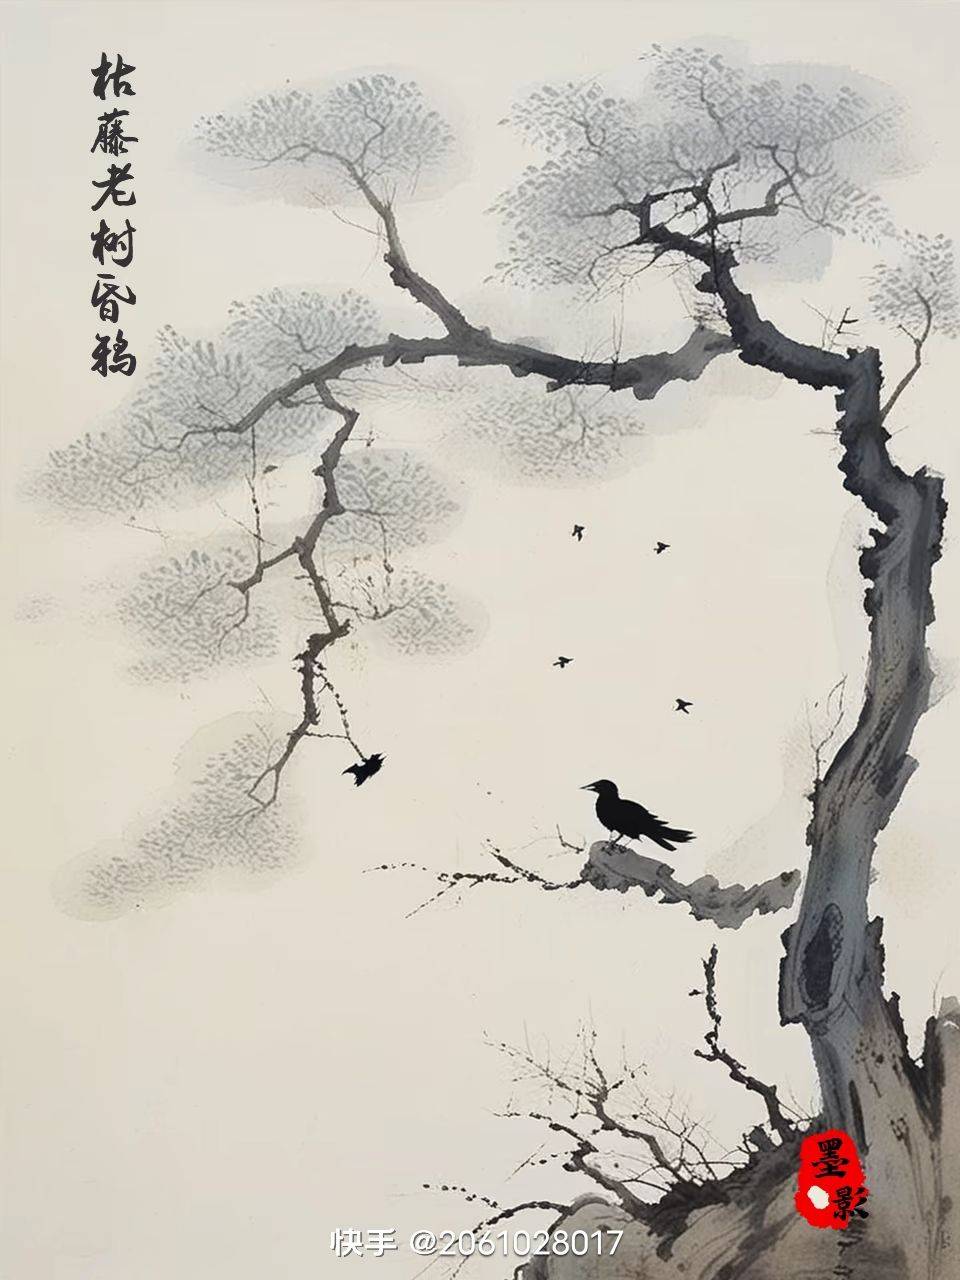 枯藤老树昏鸦
墨影
快手 @2061028017